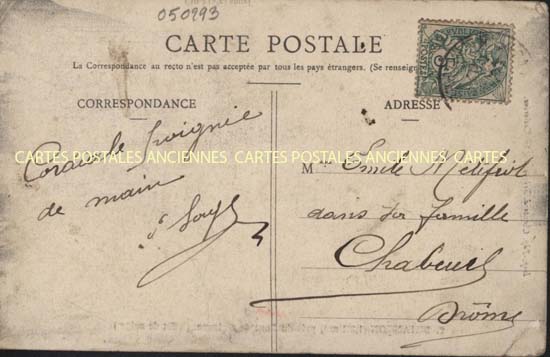 050993
CARTE POSTALE
La Correspondance au recto n'est pas acceptée par tous les pays étrangers. (Se renseign
CORRESPONDANCE
ADRESSE
Cordiale Poignée
de main
CARTES POSTALES ANCIENNES CARTES POSTALES ANCIENNES CARTES POSTALES ANCIENNES CARTES
M Emile
dans sa famille
Chabeuil
Drôme